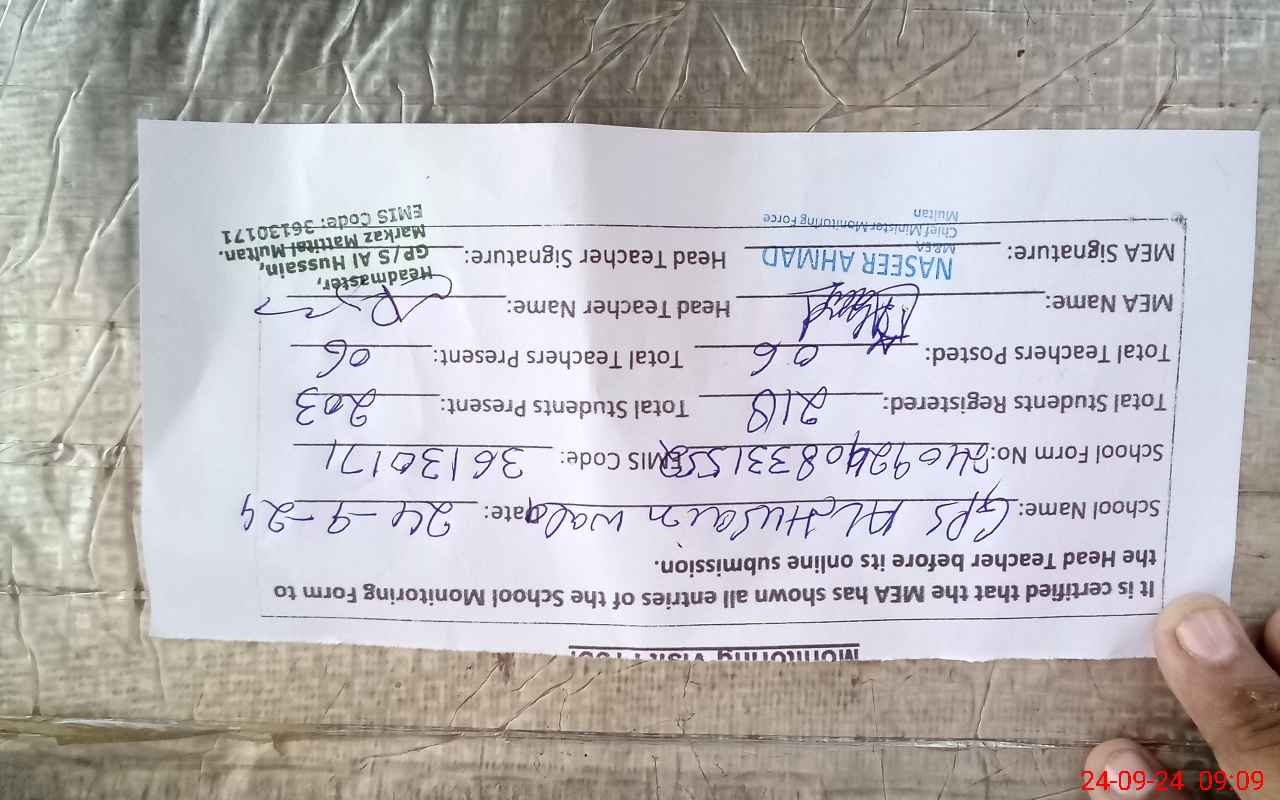 Monitoring Visit
It is certified that the MEA has shown all entries of the School Monitoring Form to
the Head Teacher before its online submission.
School Name: GPS Al-Husain wala Date: 24-9-24
School Form No: EMIS Code: 36130171
Total Students Registered: 218 Total Students Present: 203
Total Teachers Posted: 06 Total Teachers Present: 06
MEA Name: Head Teacher Name:
MEA Signature: Head Teacher Signature:
NASEER AHMAD
MEA
Chief Minister Monitoring Force
Multan
Headmaster,
GP/S Al Hussain,
Markaz Mattital Multan.
EMIS Code: 36130171
24-09-24 09:09